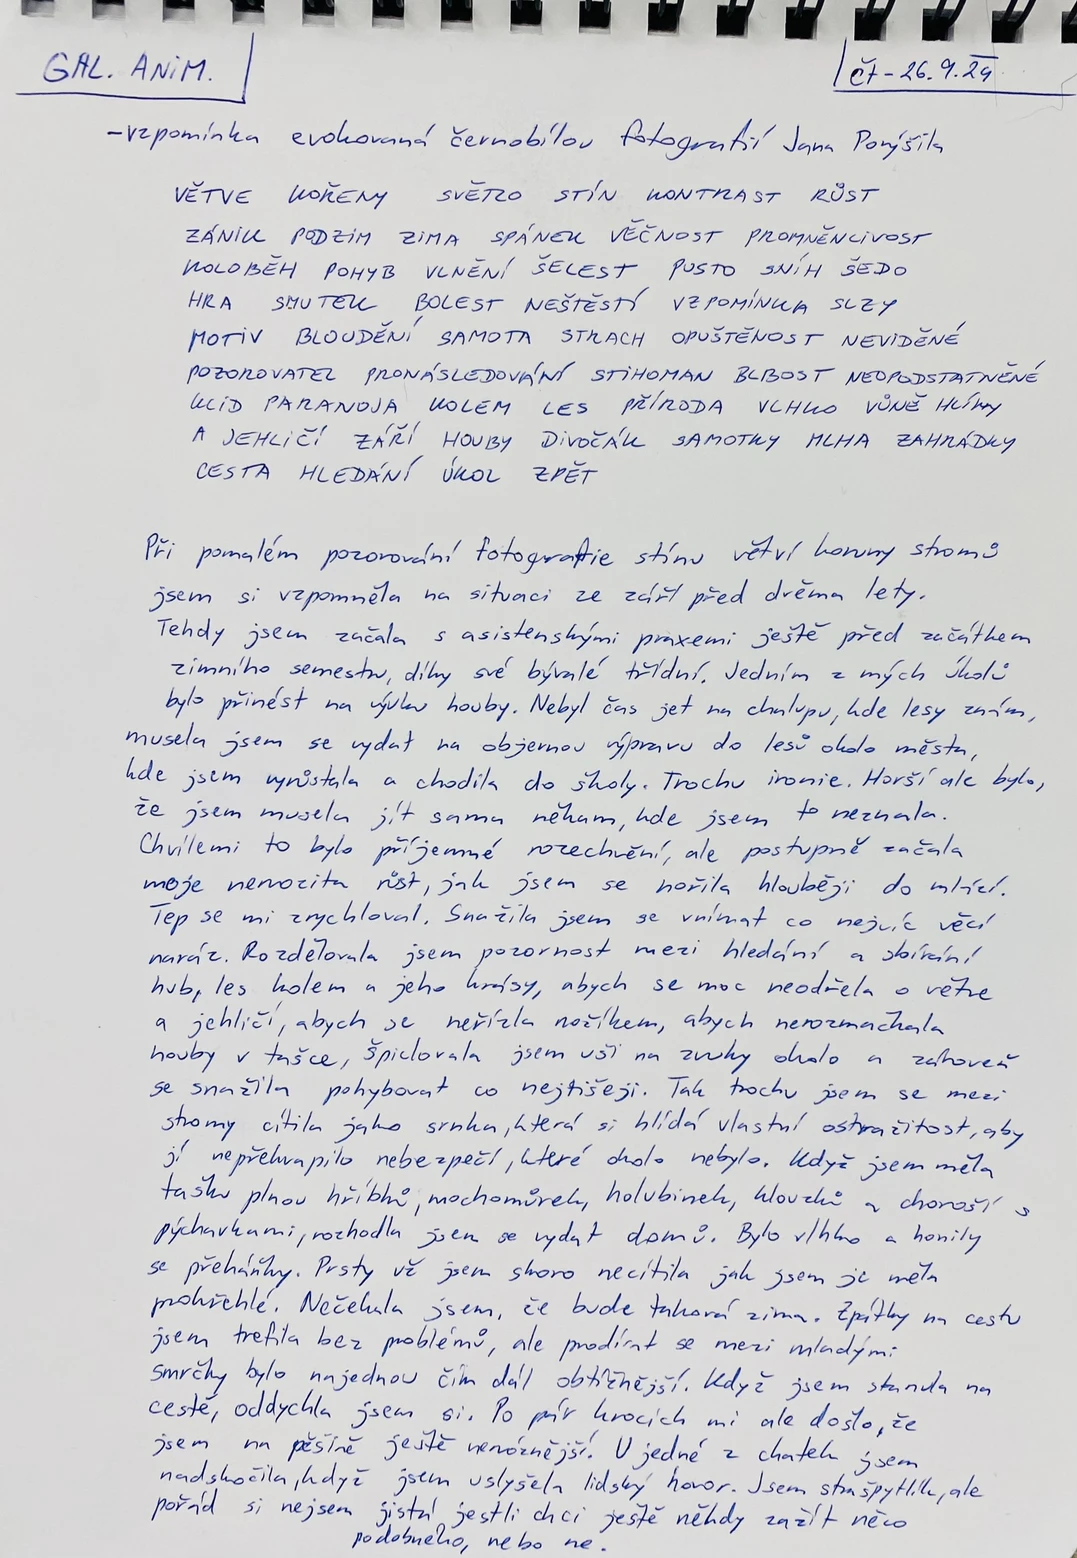 GAL. ANIM.
čt - 26.9.24
- vzpomínka evokovaná černobílou fotografií Jana Pohýšila
VĚTVE KOŘENY SVĚTLO STÍN KONTRAST RŮST
ZÁNIK PODZIM ZIMA SPÁNEK VĚČNOST PROMĚNLIVOST
KOLOBĚH POHYB VLNĚNÍ ŠELEST PUSTO SNÍH ŠEDO
HRA SMUTEK BOLEST NEŠTĚSTÍ VZPOMÍNKA SLZY
MOTIV BLOUDĚNÍ SAMOTA STRACH OPUŠTĚNOST NEVIDĚNÉ
POZOROVATEL PRONÁSLEDOVÁNÍ STIHOMAN BLBOST NEOPODSTATNĚNÉ
KLID PARANOJA KOLEM LES PŘÍRODA VLHKO VŮNĚ HLÍNY
A JEHLIČÍ ZÁŘÍ HOUBY DIVOČÁK SAMOTKY MLHA ZAHRÁDKY
CESTA HLEDÁNÍ ÚKOL ZPĚT
Při pomalém pozorování fotografie stínu větví koruny stromů
jsem si vzpomněla na situaci ze září před dvěma lety.
Tehdy jsem začala s asistenskými praxemi ještě před začátkem
zimního semestru, díky své bývalé třídní. Jedním z mých úkolů
bylo přinést na výuku houby. Nebyl čas jet na chalupu, kde lesy znám,
musela jsem se vydat na objevnou výpravu do lesů okolo města,
kde jsem vyrůstala a chodila do školy. Trochu ironie. Horší ale bylo,
že jsem musela jít sama někam, kde jsem to neznala.
Chvílemi to bylo příjemné rozechvění, ale postupně začala
moje nervozita růst, jak jsem se nořila hlouběji do mlází.
Tep se mi zrychloval. Snažila jsem se vnímat co nejvíc věcí
naráz. Rozdělovala jsem pozornost mezi hledání a sbírání
hub, les kolem a jeho krásy, abych se moc neodřela o větve
a jehličí, abych se neřízla nožíkem, abych nerozmačkala
houby v tašce, špiclovala jsem uši na zvuky okolo a zároveň
se snažila pohybovat co nejtišeji. Tak trochu jsem se mezi
stromy cítila jako srnka, která si hlídá vlastní ostražitost, aby
jí nepřekvapilo nebezpečí, které okolo nebylo. Když jsem měla
tašku plnou hříbků, mochomůrek, holubinek, klouzků a chorošů s
pýchavkami, rozhodla jsem se vydat domů. Bylo vlhko a honily
se přeháňky. Prsty už jsem skoro necítila jak jsem je měla
prokřehlé. Nečekala jsem, že bude taková zima. Zpátky na cestu
jsem trefila bez problémů, ale prodírat se mezi mladými
smrčky bylo najednou čím dál obtížnější. Když jsem stanula na
cestě, oddychla jsem si. Po pár krocích mi ale došlo, že
jsem na pěšině ještě nervóznější. U jedné z chatek jsem
nadskočila, když jsem uslyšela lidský hovor. Jsem strašpytlík, ale
pořád si nejsem jistá jestli chci ještě někdy zažít něco
podobného, nebo ne.